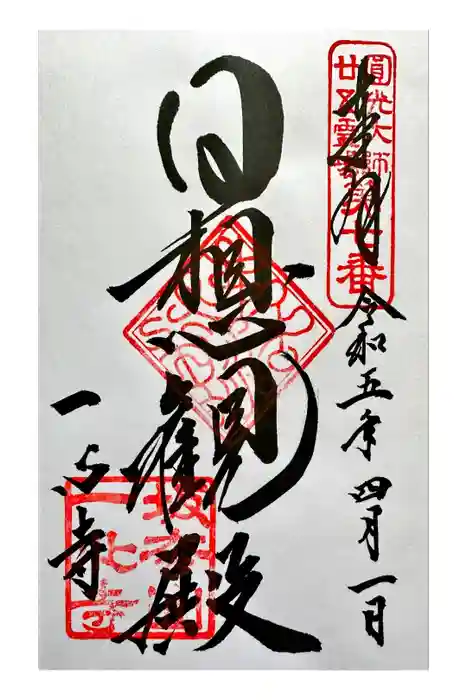 奉拝
令和五年四月一日
日想観殿
一心寺
圓光大師
廿五霊場第七番